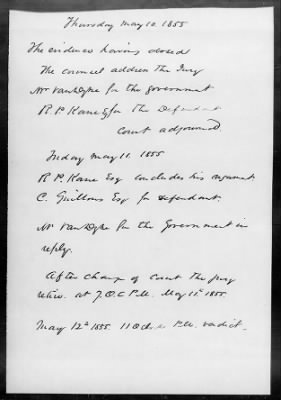 Thursday May 10. 1855
The evidence having closed
The counsel address the Jury
Mr VanDyke for the government
R. P. Kane Esq for the Defendant
Court adjourned
Friday May 11. 1855
R. P. Kane Esq concludes his argument
C. Guillou Esq for Defendant.
Mr VanDyke for the Government in
reply.
After charge of Court the jury
retire. at 7. O.C P.M. May 11th 1855.
May 12th 1855. 11 O.C. P.M. verdict.